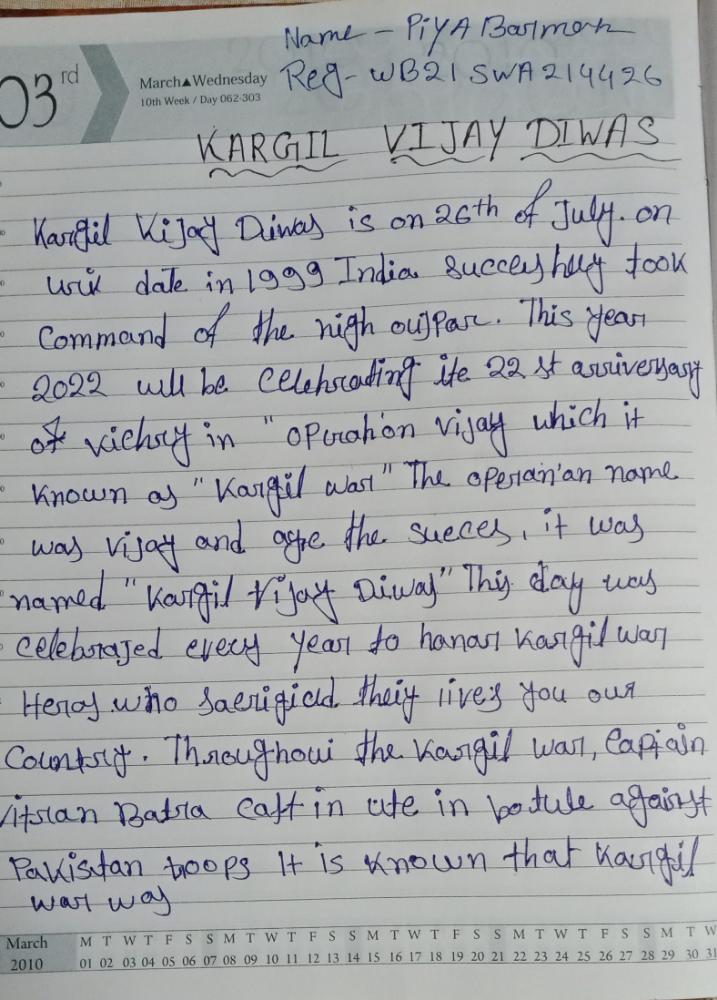 Name - PiYA Barman
03rd
March▲Wednesday
Reg- WB21SWA214426
10th Week / Day 062-303
KARGIL VIJAY DIWAS
Kargil Vijay Diwas is on 26th of July. on
date in 1999 India succesfully took
Command of the high outpar. This year
2022 will be celebrating its 22 st anniversary
of victory in "operation vijay which it
known as "Kargil war" The operation name
was vijay and after the succes, it was
named "Kargil Vijay Diwas" This day was
celebrated every year to honar kargil war
Heros who sacrificed their lives you our
Country. Throughout the kargil war, Captain
Batra in in against
Pakistan troops It is known that Kargil
war was
March M T W T F S S M T W T F S S M T W T F S S M T W T F S S M T W
2010 01 02 03 04 05 06 07 08 09 10 11 12 13 14 15 16 17 18 19 20 21 22 23 24 25 26 27 28 29 30 31